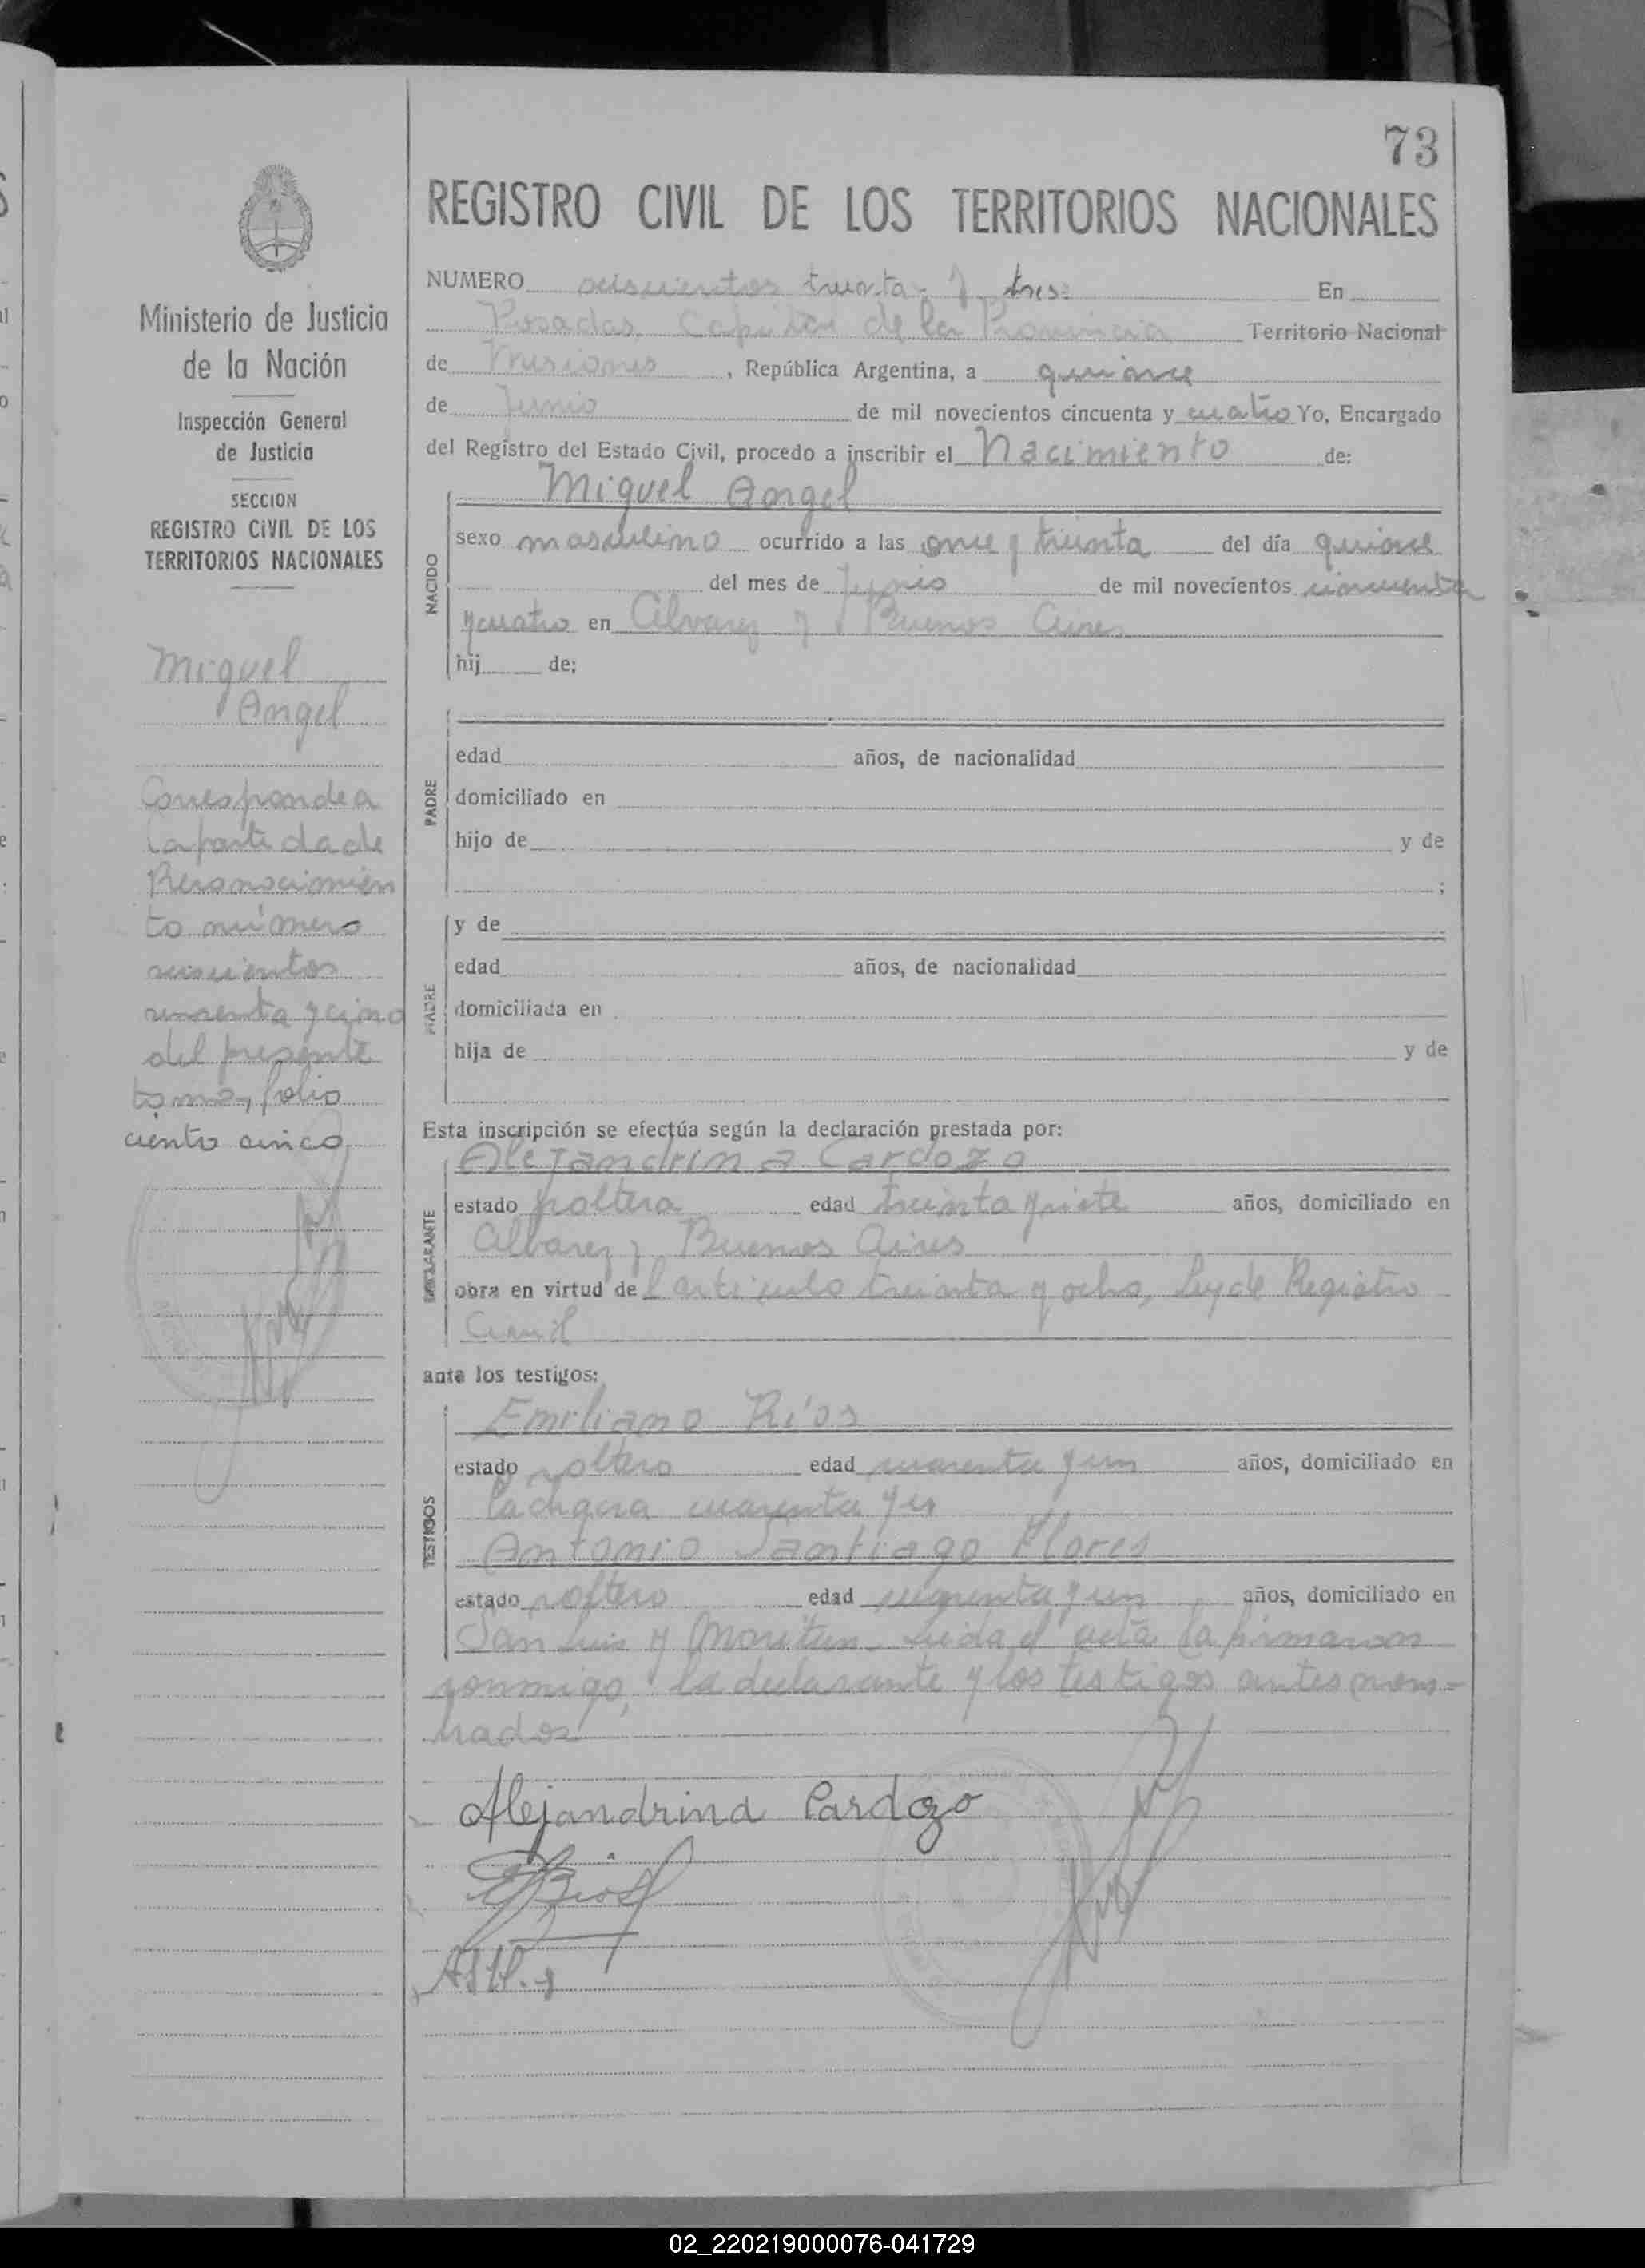 73
REGISTRO CIVIL DE LOS TERRITORIOS NACIONALES
Ministerio de Justicia
de la Nación
Inspección General
de Justicia
SECCION
REGISTRO CIVIL DE LOS
TERRITORIOS NACIONALES
Miguel
Angel
Corresponde a
la partida de
Reconocimien
to número
seiscientos
y cinco
del presente
tomo, folio
ciento cinco
NUMERO seiscientos treinta y tres: En
Posadas Capital de la Provincia Territorio Nacional
de Misiones, República Argentina, a quince
de Junio de mil novecientos cincuenta y cuatro Yo, Encargado
del Registro del Estado Civil, procedo a inscribir el Nacimiento de:
Miguel Angel
NACIDO
sexo masculino ocurrido a las once y treinta del día quince
del mes de Junio de mil novecientos cincuenta
y cuatro en Alvarez y Buenos Aires
hij de:
PADRE
edad años, de nacionalidad
domiciliado en
hijo de y de
;
MADRE
y de
edad años, de nacionalidad
domiciliada en
hija de y de
Esta inscripción se efectúa según la declaración prestada por:
DECLARANTE
Alejandrina Cardozo
estado soltera edad treinta y siete años, domiciliado en
Albarez y Buenos Aires
obra en virtud de l articulo treinta y ocho, Ley de Registro
Civil
ante los testigos:
TESTIGOS
Emiliano Ríos
estado soltero edad cuarenta y un años, domiciliado en
la chacra cuarenta y
Antonio Santiago Flores
estado soltero edad cuarenta y un años, domiciliado en
San Luis y Leida el acta la firmaron
conmigo, la declarante y los testigos antes nom=
brados
Alejandrina Cardozo